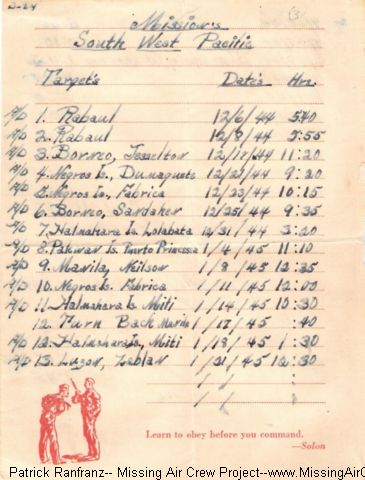 B-24
Mission's
South West Pacific
Target's Date's Hr.
1. Rabaul 12/6/44 5:40
2. Rabaul 12/9/44 5:55
3. Borneo, Jesselton 12/17/44 11:20
4. Negros Is., Dumaguete 12/22/44 9:20
5. Negros Is., Fabrica 12/23/44 10:15
6. Borneo, Sandaken 12/25/44 9:35
7. Halmahara Is. Lolabata 12/31/44 3:20
8. Palawan Is. Puerto Princesa 1/4/45 11:10
9. Manila, Neilson 1/8/45 12:35
10. Negros Is. Fabrica 1/11/45 12:00
11. Halmahara Is. Miti 1/14/45 10:30
12. Turn Back Manila 1/17/45 :40
12. Halmahara Is., Miti 1/18/45 1:30
13. Luzon, Zablan 1/21/45 12:30
Learn to obey before you command.
—Solon
Patrick Ranfranz-- Missing Air Crew Project--www.MissingAirC